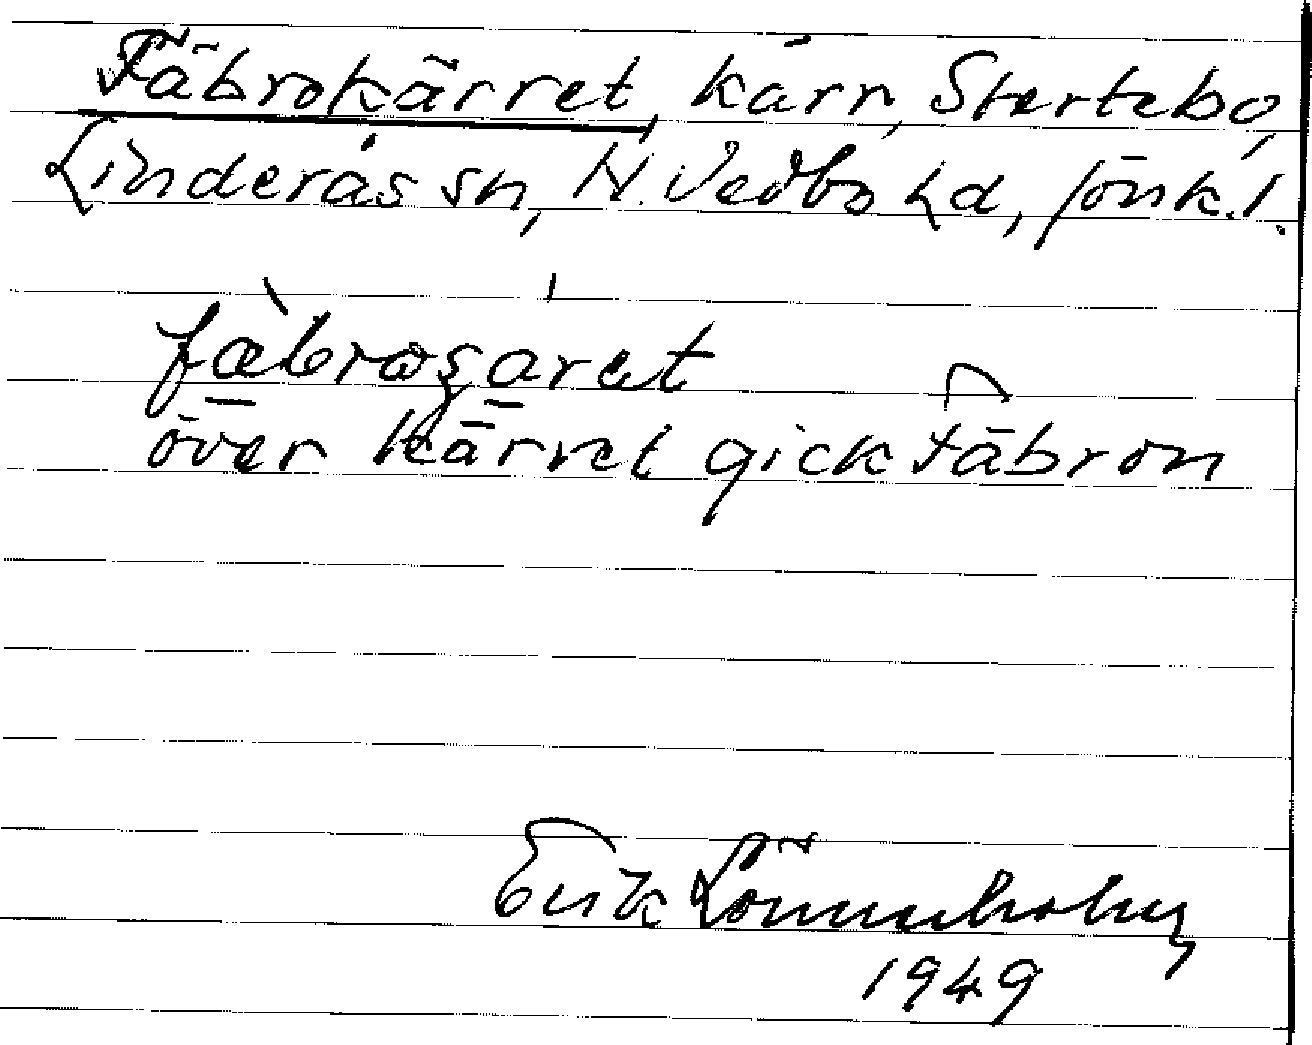 Fäbrokärret, kärr, Stertebo,
Linderås sn, N. Vedbo hd, Jönk. l.
fæ̀brosá̱ret
över kärret gick Fäbron
Erik Lönnerholm
1949